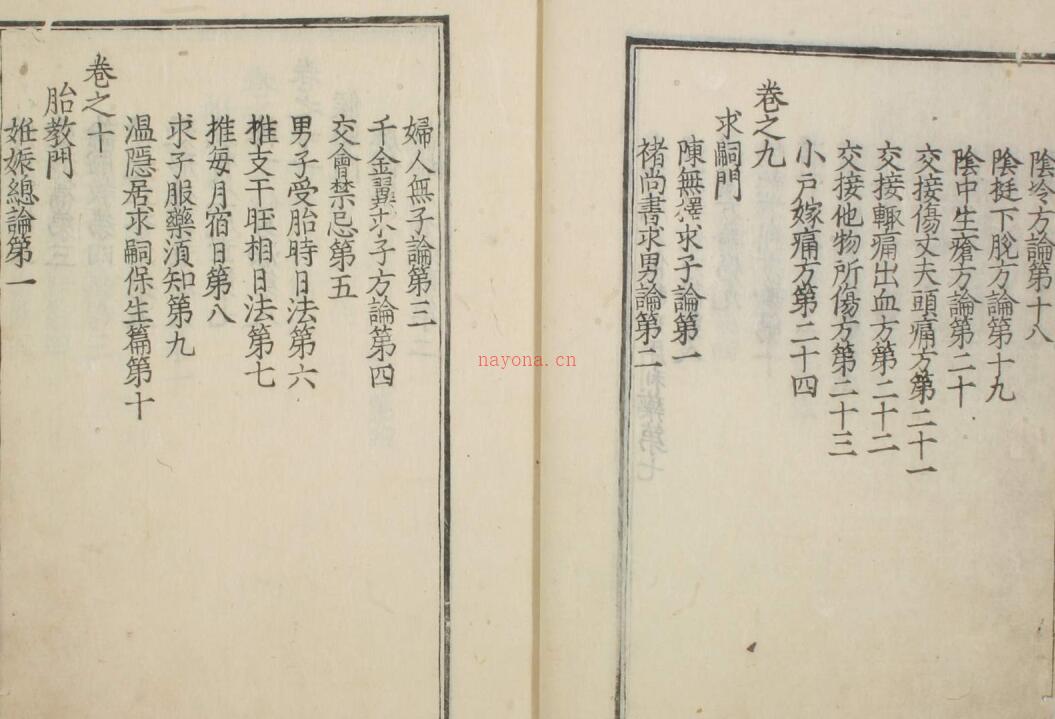 陰冷方論第十八
陰挺下脫方論第十九
陰中生瘡方論第二十
交接傷丈夫頭痛方第二十一
交接輙痛出血方第二十二
交接他物所傷方第二十三
小戶嫁痛方第二十四
卷之九
求嗣門
陳無擇求子論第一
褚尚書求男論第二
婦人無子論第三
千金翼求子方論第四
交會禁忌第五
男子受胎時日法第六
推支干旺相日法第七
推每月宿日第八
求子服藥湏知第九
温隱居求嗣保生篇第十
卷之十
胎教門
姙娠總論第一
nayona.cn